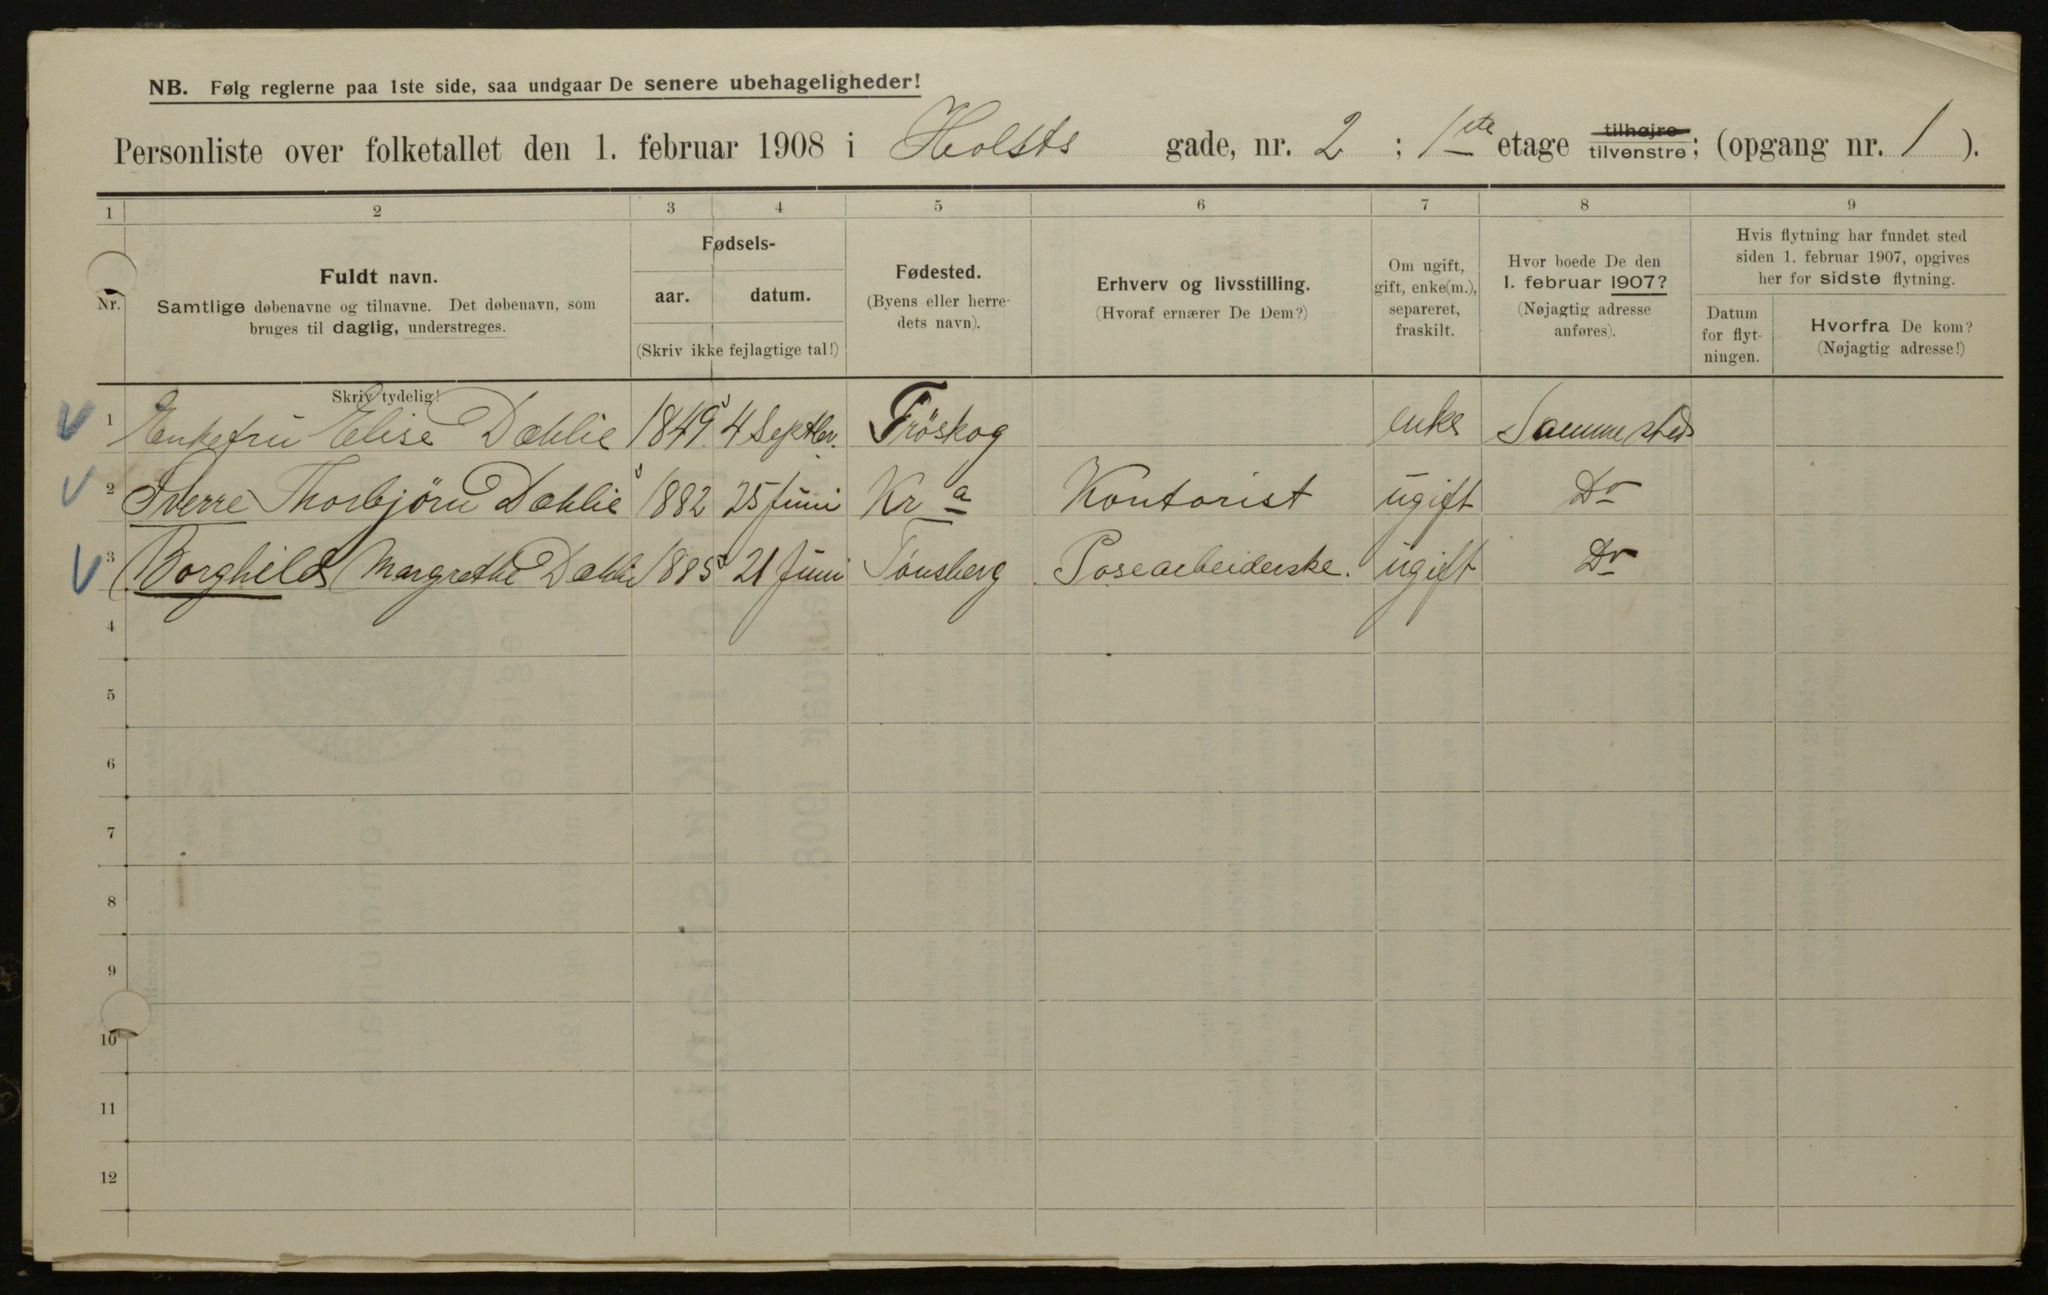 NB. Følg reglerne paa 1ste side, saa undgaar De senere ubehageligheder!
Personliste over folketallet den 1. februar 1908 i Holsts gade, nr. 2 ; 1ste etage tilhøjre tilvenstre; (opgang nr. 1 ).
1 2 3 4 5 6 7 8 9
Nr.
Fuldt navn.
Samtlige døbenavne og tilnavne. Det døbenavn, som
bruges til daglig, understreges.
Fødsels-
aar. datum.
(Skriv ikke fejlagtige tal!)
Fødested.
(Byens eller herre-
dets navn).
Erhverv og livsstilling.
(Hvoraf ernærer De Dem?)
Om ugift,
gift, enke(m.),
separeret,
fraskilt.
Hvor boede De den
1. februar 1907?
(Nøjagtig adresse
anføres).
Hvis flytning har fundet sted
siden 1. februar 1907, opgives
her for sidste flytning.
Datum
for flyt-
ningen.
Hvorfra De kom?
(Nøjagtig adresse!)
Skriv tydelig!
1 Enkefru Elise Dæhlie 1849 4 Septbr. Fröskog enke Samme sted
2 Sverre Thorbjörn Dæhlie 1882 25 Juni Kra Kontorist ugift Do
3 Borghild Margrethe Dæhlie 1885 21 Juni Tønsberg Posearbeiderske. ugift Do
4
5
6
7
8
9
10
11
12